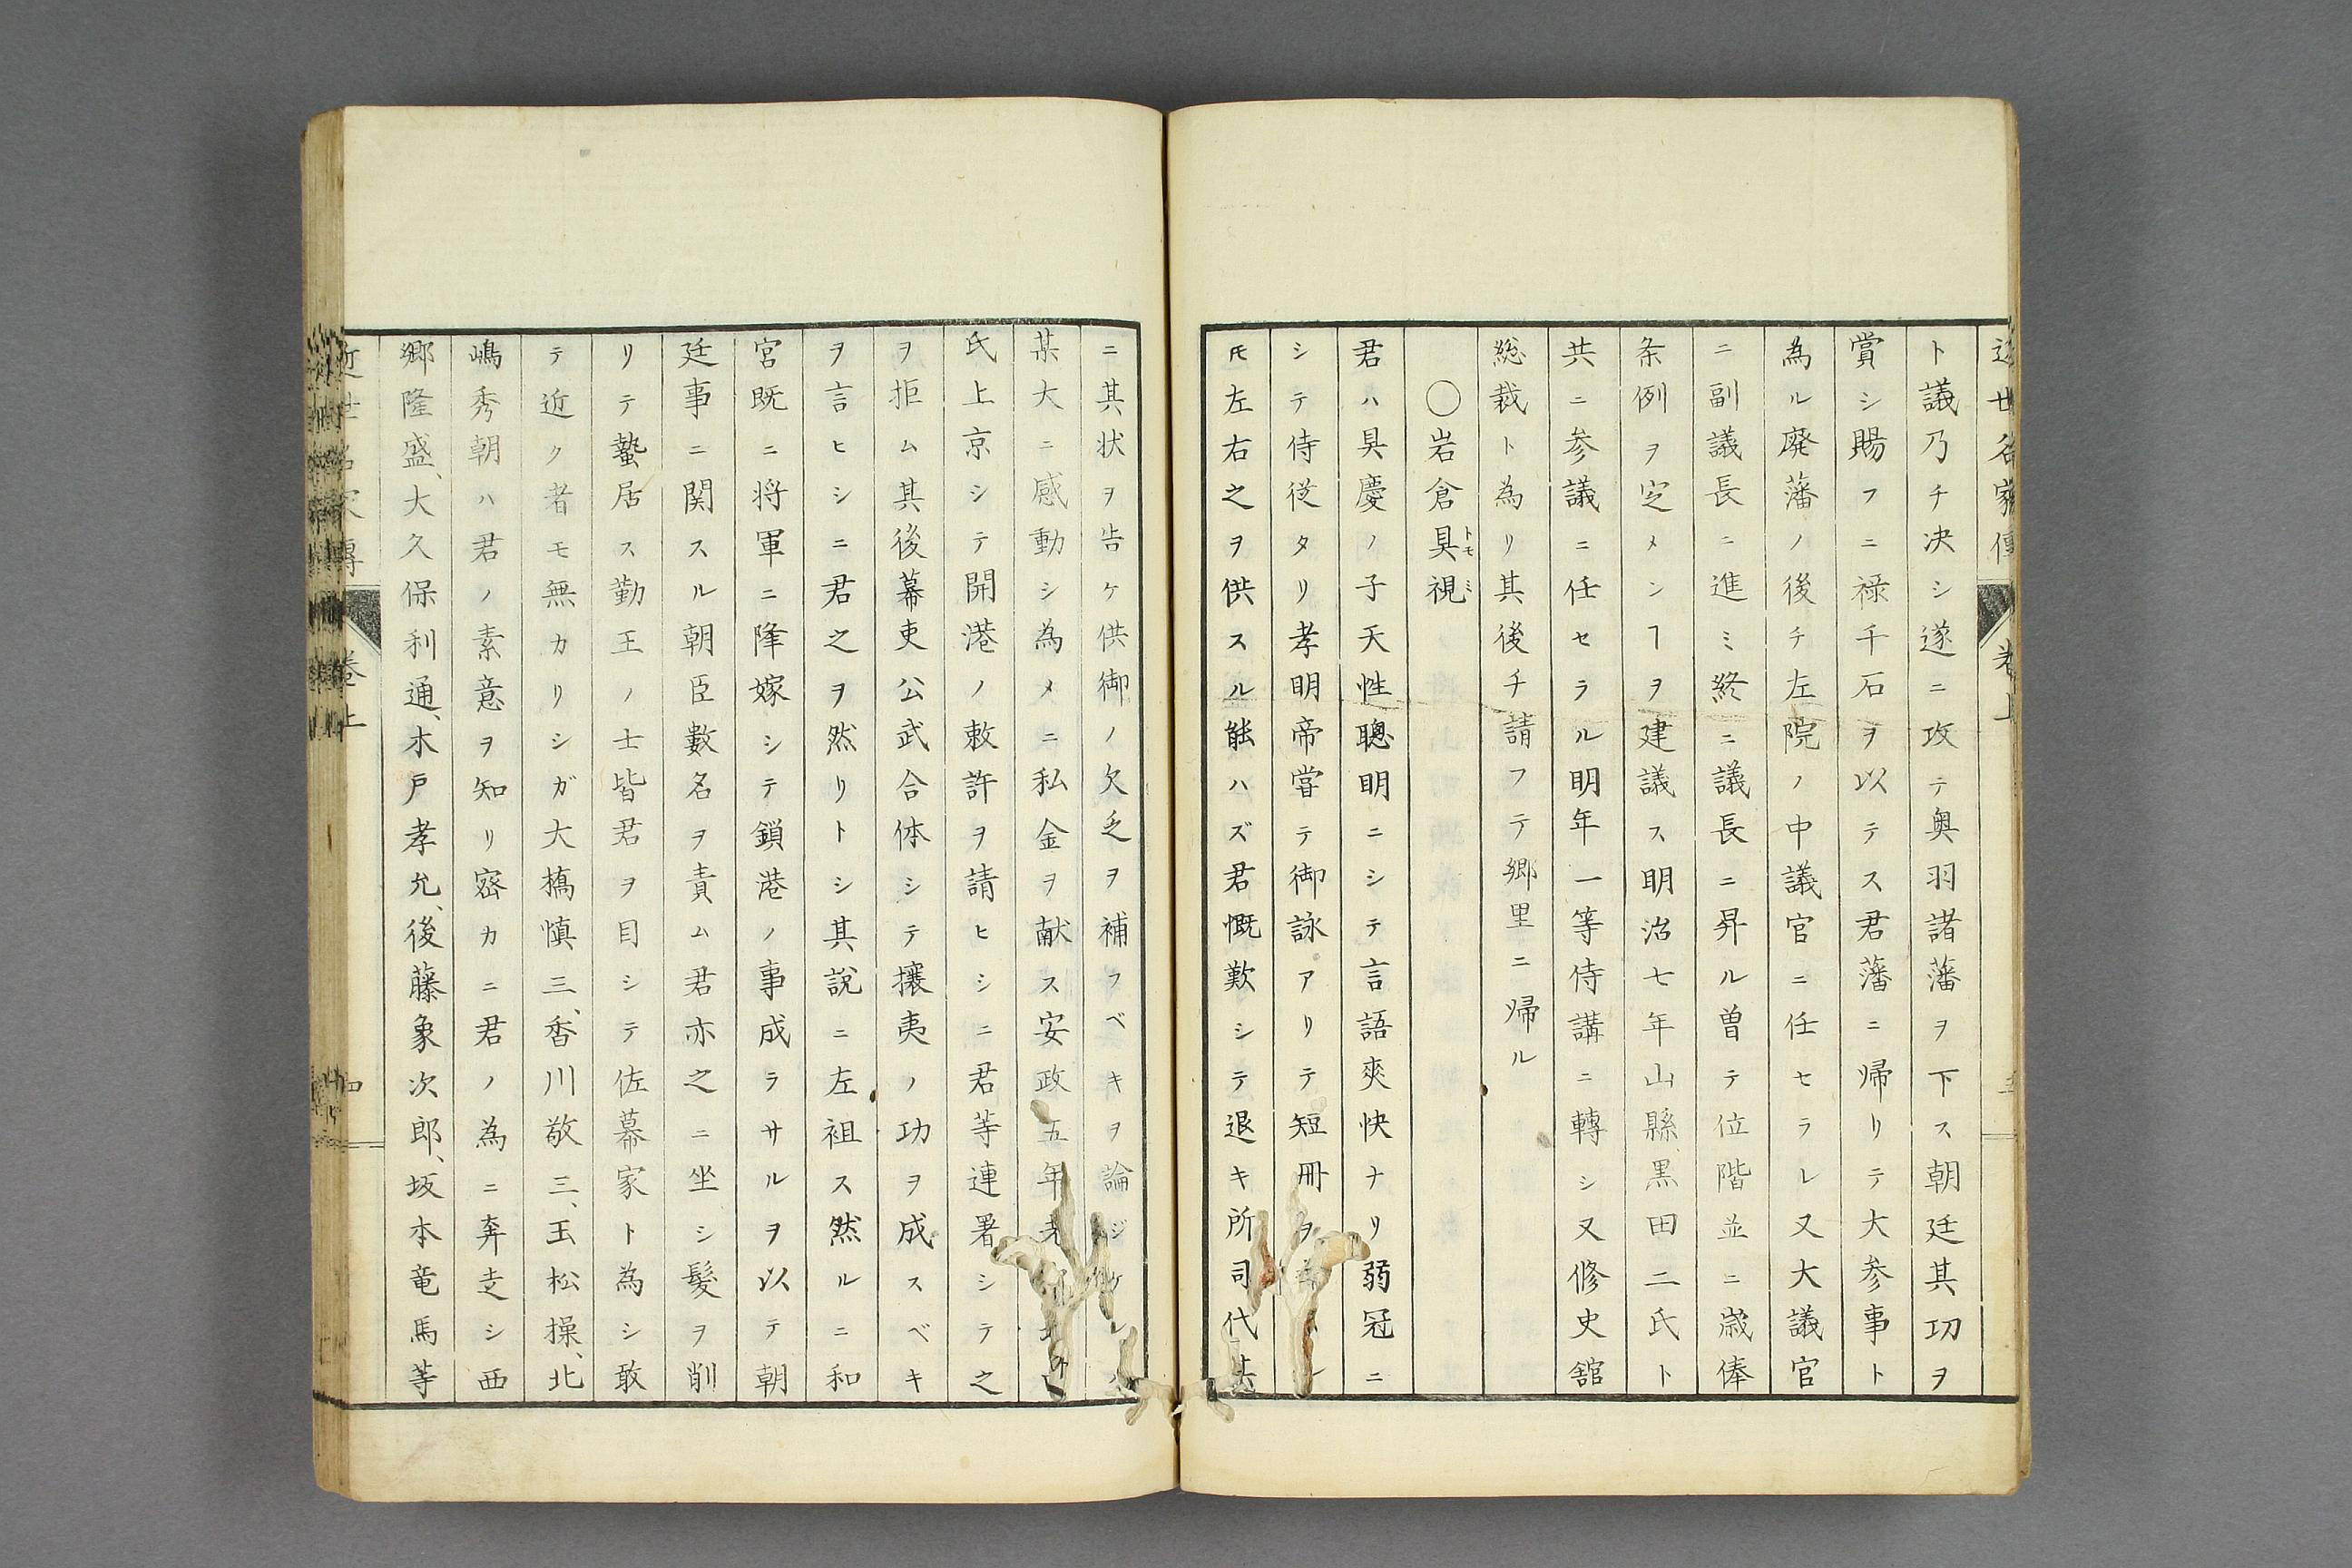 ト議乃チ决シ遂ニ攻テ奥羽諸藩ヲ下ス朝廷其功ヲ
賞シ賜フニ禄千石ヲ以テス君藩ニ帰リテ大参事ト
為ル廃藩ノ後チ左院ノ中議官ニ任セラレ又大議官
ニ副議長ニ進ミ終ニ議長ニ昇ル曽テ位階並ニ歳俸
条例ヲ定メンヿヲ建議ス明治七年山縣、黒田二氏ト
共ニ参議ニ任セラル明年一等侍講ニ轉シ又修史舘
総裁ト為リ其後チ請フテ郷里ニ帰ル
〇岩倉具視
トモミ
君ハ具慶ノ子天性聰明ニシテ言語爽快ナリ弱冠ニ
シテ侍従タリ孝明帝甞テ御詠アリテ短冊ヲ
氏左右之ヲ供スル能ハズ君慨歎シテ退キ所司代
ニ其状ヲ告ケ供御ノ欠乏ヲ補フベキヲ論ジケ
某大ニ感動シ為メニ私金ヲ献ス安政五年
氏上京シテ開港ノ敕許ヲ請ヒシニ君等連署シテ之
ヲ拒ム其後幕吏公武合体シテ攘夷ノ功ヲ成スベキ
ヲ言ヒシニ君之ヲ然リトシ其説ニ左袒ス然ルニ和
宮既ニ将軍ニ降嫁シテ鎖港ノ事成ラサルヲ以テ朝
廷事ニ関スル朝臣數名ヲ責ム君亦之ニ坐シ髪ヲ削
リテ蟄居ス勤王ノ士皆君ヲ目シテ佐幕家ト為シ敢
テ近ク者モ無カリシガ大橋慎三、香川敬三、玉松操、北
嶋秀朝ハ君ノ素意ヲ知リ密カニ君ノ為ニ奔走シ西
郷隆盛、大久保利通、木戸孝允、後藤象次郎、坂本竜馬等
近世名家傳
巻上
四